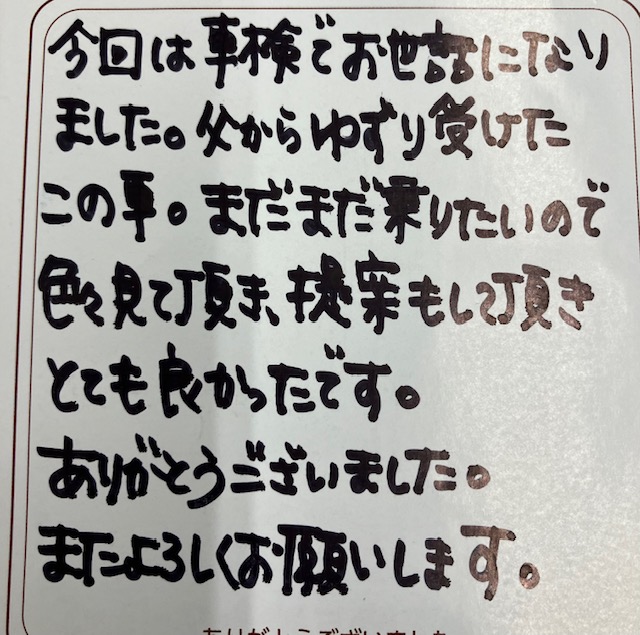 今回は車検でお世話になり
ました。父からゆずり受けた
この車。まだまだ乗りたいので
色々見て頂き、提案もして頂き
とても良かったです。
ありがとうございました。
またよろしくお願いします。
ありがとうございました